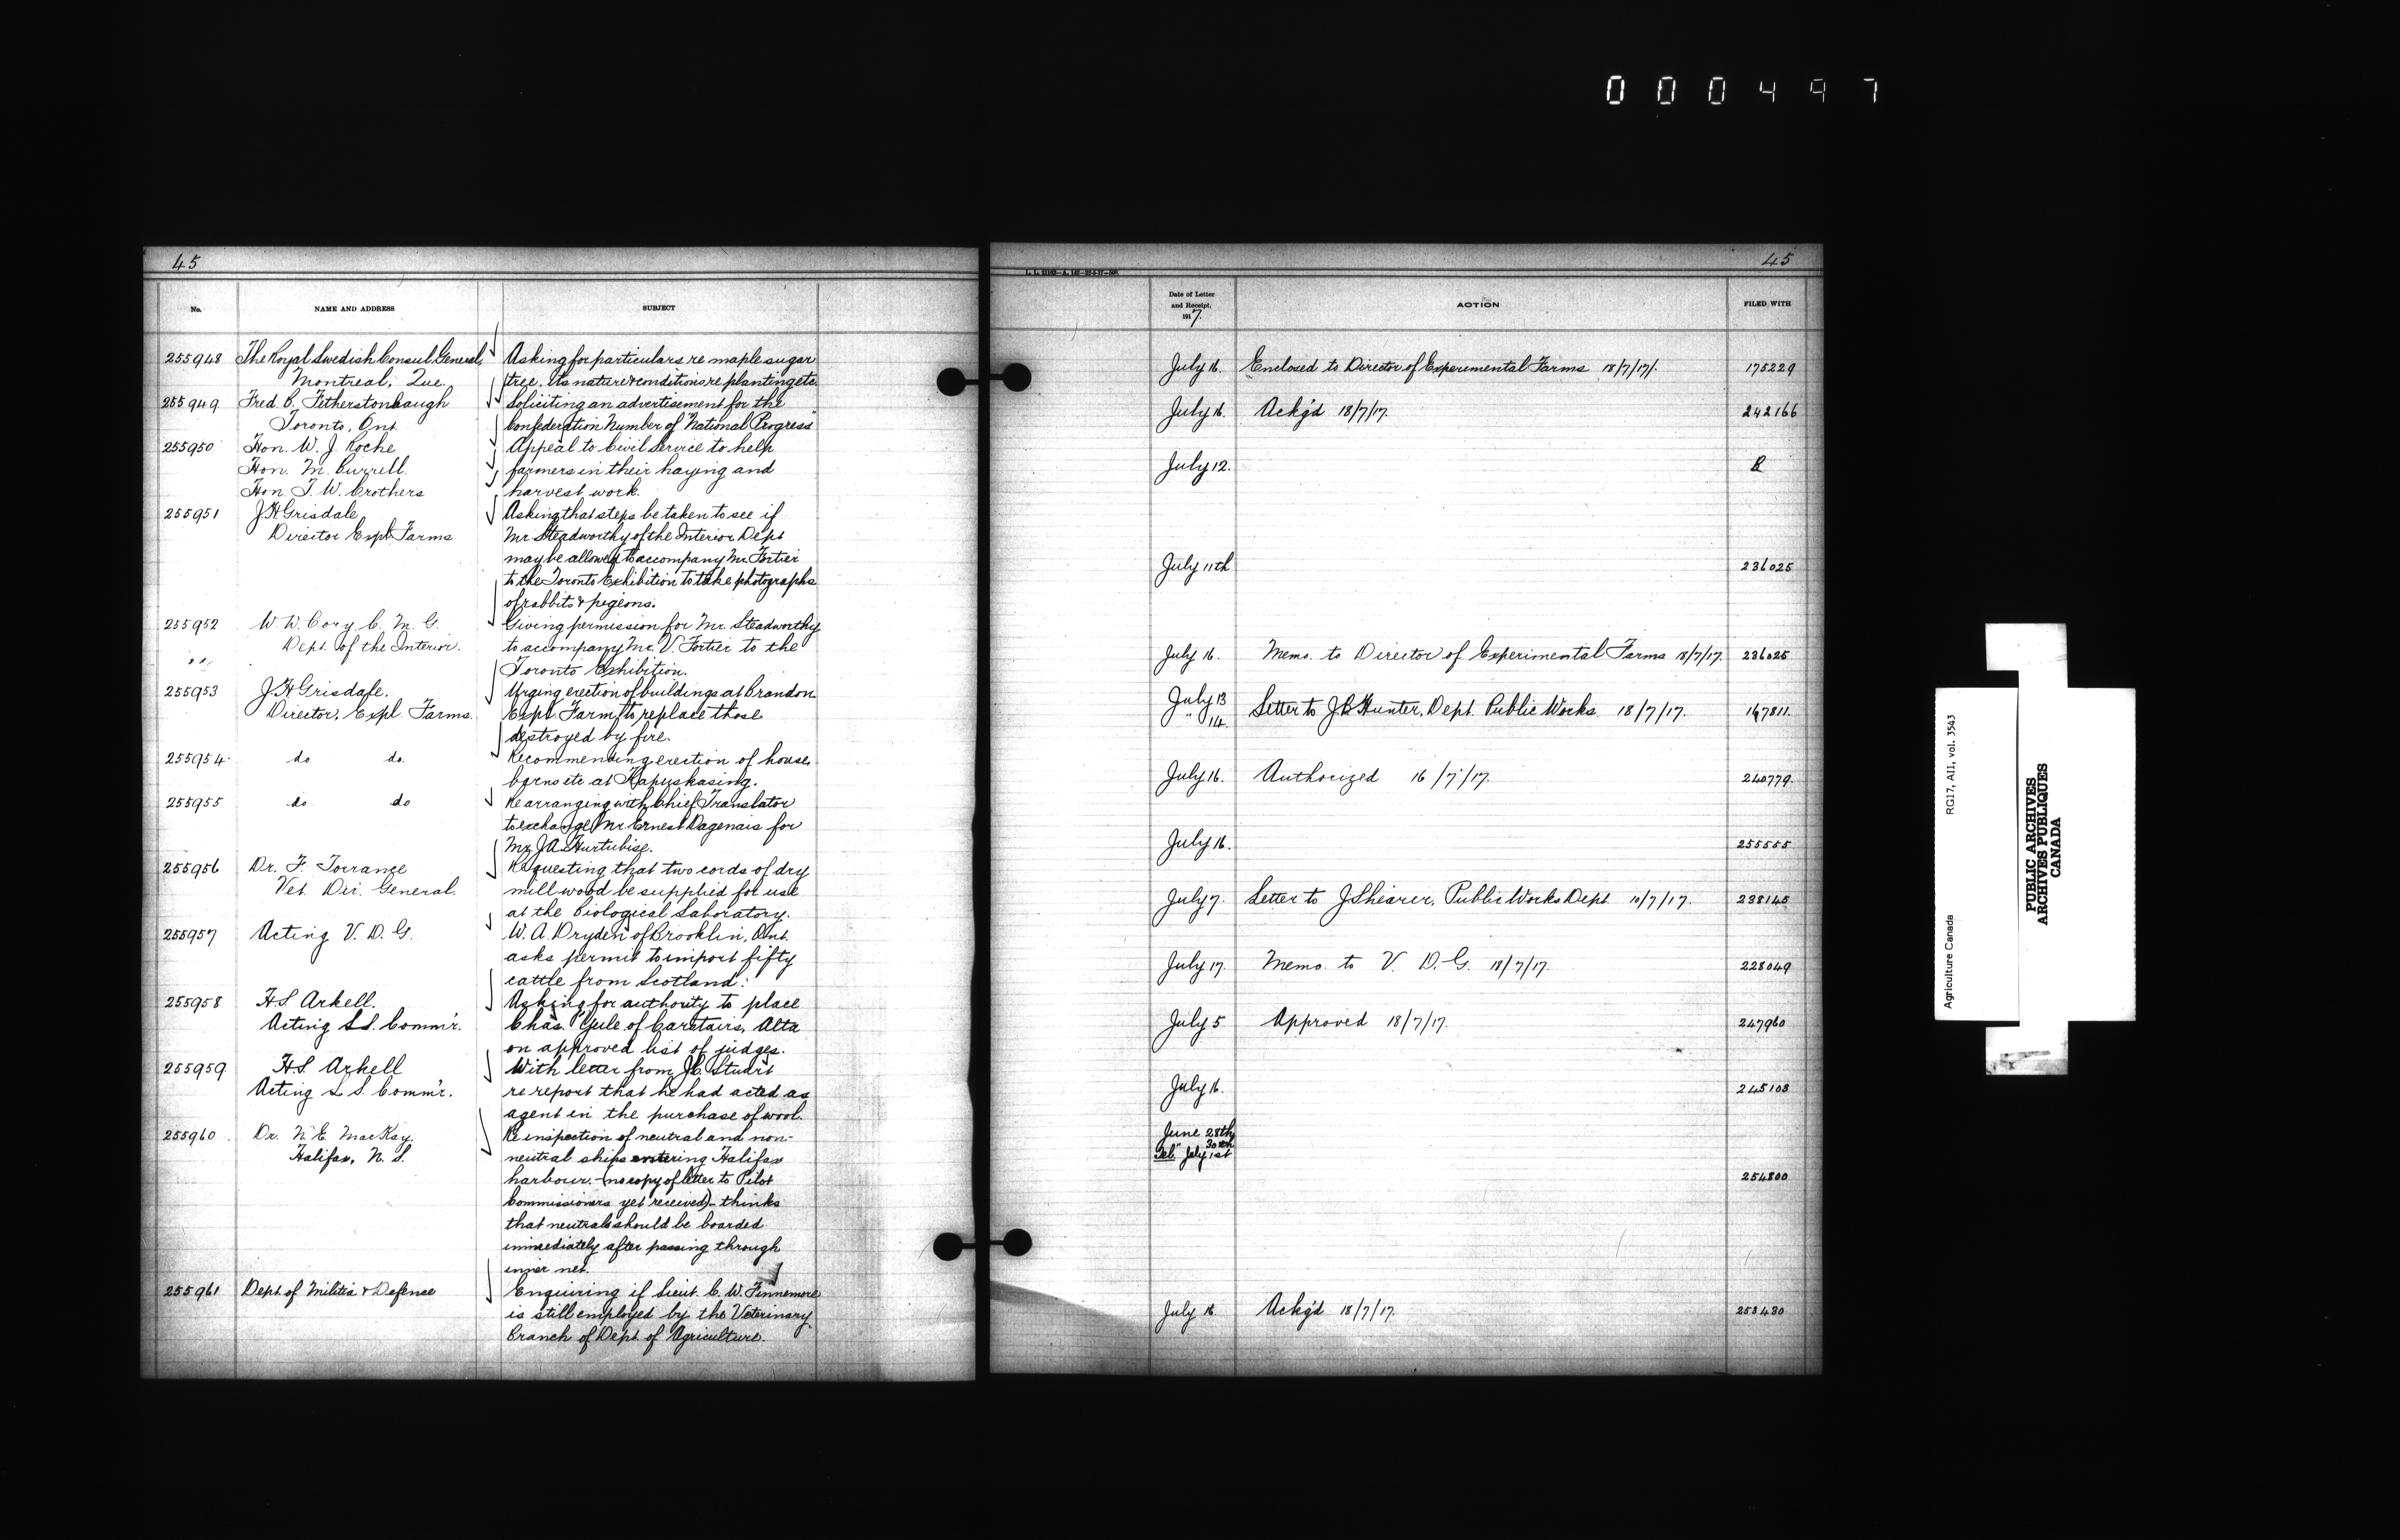 000497
45
No.
NAME AND ADDRESS
SUBJECT
255948 The Royal Swedish Consul General, Asking for particulars re maple sugar
Montreal, Que. tree. Its nature & conditions re planting etc
255949 Fred. B. Fetherstonhaugh Soliciting an advertisement for the
Toronto, Ont. Confederation Number of "National Progress"
255950 Hon. W. J. Roche Appeal to Civil Service to help
Hon. M. Burrell. farmers in their haying and
Hon. T. W. Crothers harvest work.
255951 J H Grisdale Asking that steps be taken to see if
Director Expl. Farms Mr Steadworthy of the Interior Dept
may be allowed to accompany Mr. Fortier
to the Toronto Exhibition to take photographs
of rabbits & pigeons.
255952 W. W. Cory C. M. G. Giving permission for Mr. Steadworthy
Dept. of the Interior. to accompany Mr. V. Fortier to the
" " Toronto Exhibition.
255953 J H Grisdale. Urging erection of buildings at Brandon
Director, Expl. Farms. Expl. Farm to replace those
destroyed by fire.
255954 do do. Recommending erection of house,
barns etc at Kapuskasing.
255955 do do Re arranging with Chief Translator
to exchange Mr Ernest Dagenais for
Mr J.A. Hurtubise.
255956 Dr. F. Torrance Requesting that two cords of dry
Vet. Dir. General. mill wood be supplied for use
at the Biological Laboratory.
255957 Acting V. D. G. W. A. Dryden of Brooklin, Ont.
asks permit to import fifty
cattle from Scotland.
255958 H S Arkell. Asking for authority to place
Acting L S. Comm'r. Chas. Yule of Carstairs, Alta
on approved list of judges.
255959 H S Arkell With letter from J C. Stuart
Acting L S. Comm'r. re report that he had acted as
agent in the purchase of wool.
255960 Dr. N. E. MacKay. Re inspection of neutral and non-
Halifax, N. S. neutral ships entering Halifax
harbour. - (no copy of letter to Pilot
Commissioners yet received) - thinks
that neutrals should be boarded
immediately after passing through
inner net.
255961 Dept. of Militia & Defence Enquiring if Lieut. C. W. Finnemore
is still employed by the Veterinary
Branch of Dept. of Agriculture.
45
Date of Letter
and Receipt.
1917.
ACTION
FILED WITH
July 16. Enclosed to Director of Experimental Farms 18/7/17. 175229
July 16. Ackg'd 18/7/17. 242166
July 12.
July 11th 236025
July 16. Memo. to Director of Experimental Farms 18/7/17. 236025
July 13
" 14. Letter to J.B. Hunter, Dept. Public Works. 18/7/17. 167811.
July 16. Authorized 16/7/17. 240779.
July 16. 255555
July 7. Letter to J Shearer, Public Works Dept. 10/7/17. 238145
July 17. Memo. to V. D. G. 18/7/17. 228049
July 5 Approved 18/7/17. 247960
July 16. 245103
June 28th
" 30th
Tel. July 1st
254800
July 16 Ackg'd 18/7/17. 253430
Agriculture Canada RG17, AII, vol. 3543
PUBLIC ARCHIVES
ARCHIVES PUBLIQUES
CANADA